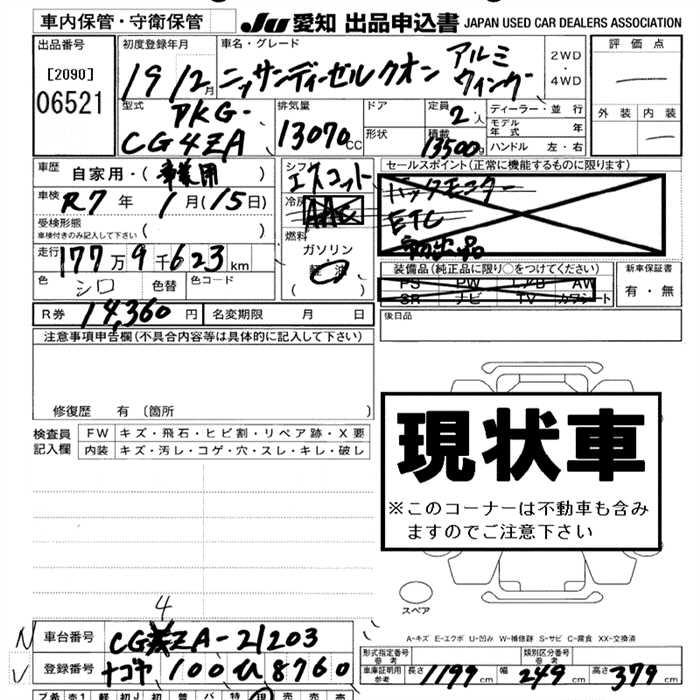 車内保管・守衛保管 JU 愛知 出品申込書 JAPAN USED CAR DEALERS ASSOCIATION
出品番号 初度登録年月 車名・グレード 評価点
[2090] 06521
19 12月 ニッサンディーゼルクオン アルミ ウィング 2WD・4WD
型式 排気量 ドア 定員 ディーラー・並行 外装 内装
PKG-CG4ZA 13070CC 形状 2人 積載 13500 モデル年式 年
ハンドル 左・右
車歴 自家用・(事業用) シフト エスコット セールスポイント(正常に機能するものに限ります)
車検 R7年 1月(15日) 冷房 AAC バックモニター
受検形態 車検付きのみ記入して下さい ( ) ETC
走行 177万9千623km 燃料 ガソリン・軽油 ( )
装備品(純正品に限り○をつけてください) 新車保証書
色 シロ 色替 色コード PS PW エアB AW 有・無
SR ナビ TV カワシート
R券 14,360円 名変期限 月 日 後日品
注意事項申告欄(不具合内容等は具体的に記入して下さい)
修復歴 有(箇所 )
検査員記入欄 FW キズ・飛石・ヒビ割・リペア跡・X要
内装 キズ・汚レ・コゲ・穴・スレ・キレ・破レ
現状車
※このコーナーは不動車も含みますのでご注意下さい
スペア
A-キズ E-エクボ U-凹み W-補修跡 S-サビ C-腐食 XX-交換済
4
N 車台番号 CG ZA-21203
V 登録番号 ナゴヤ 100 ひ 8760
形式指定番号 参考 類別区分番号 参考
車庫証明用 参考 長さ 1199cm 幅 249cm 高さ 379cm